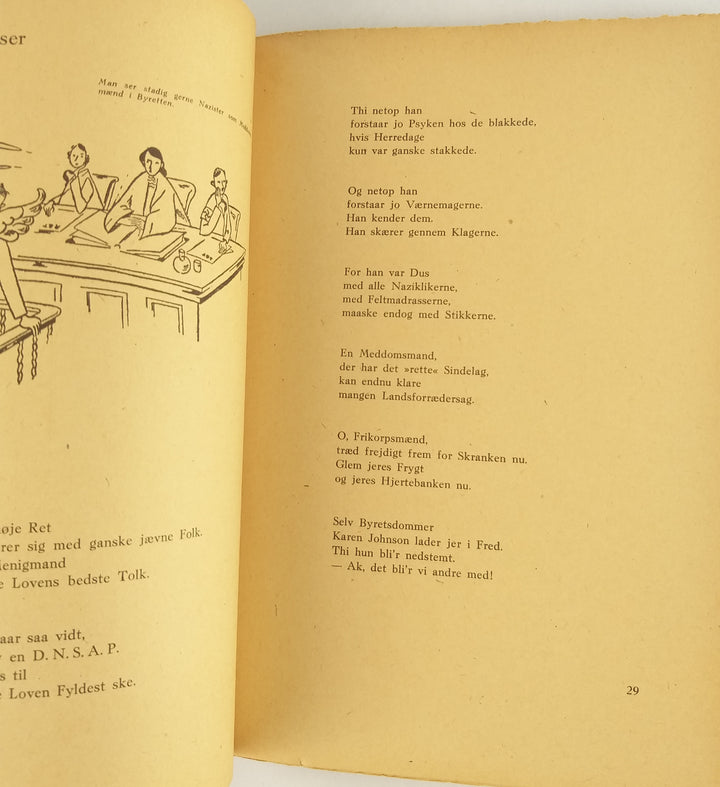 ser
Man ser stadig gerne Nazister som
mænd i Byretten.
øje Ret
rer sig med ganske jævne Folk.
enigmand
e Lovens bedste Tolk.
aar saa vidt,
en D. N. S. A. P.
s til
e Loven Fyldest ske.
Thi netop han
forstaar jo Psyken hos de blakkede,
hvis Herredage
kun var ganske stakkede.
Og netop han
forstaar jo Værnemagerne.
Han kender dem.
Han skærer gennem Klagerne.
For han var Dus
med alle Naziklikerne,
med Feltmadrasserne,
maaske endog med Stikkerne.
En Meddomsmand,
der har det »rette« Sindelag,
kan endnu klare
mangen Landsforrædersag.
O, Frikorpsmænd,
træd frejdigt frem for Skranken nu.
Glem jeres Frygt
og jeres Hjertebanken nu.
Selv Byretsdommer
Karen Johnson lader jer i Fred.
Thi hun bli'r nedstemt.
— Ak, det bli'r vi andre med!
29